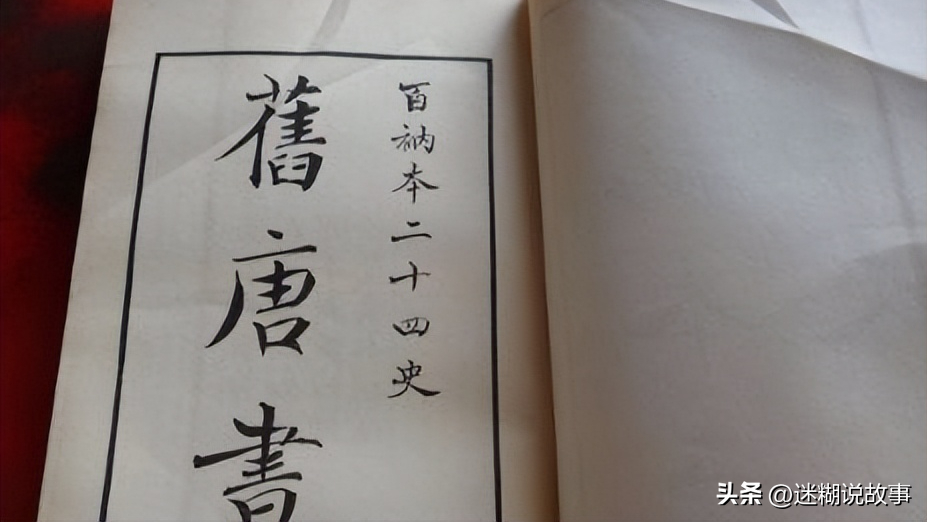 百衲本二十四史
舊唐書
头条 @迷糊说故事